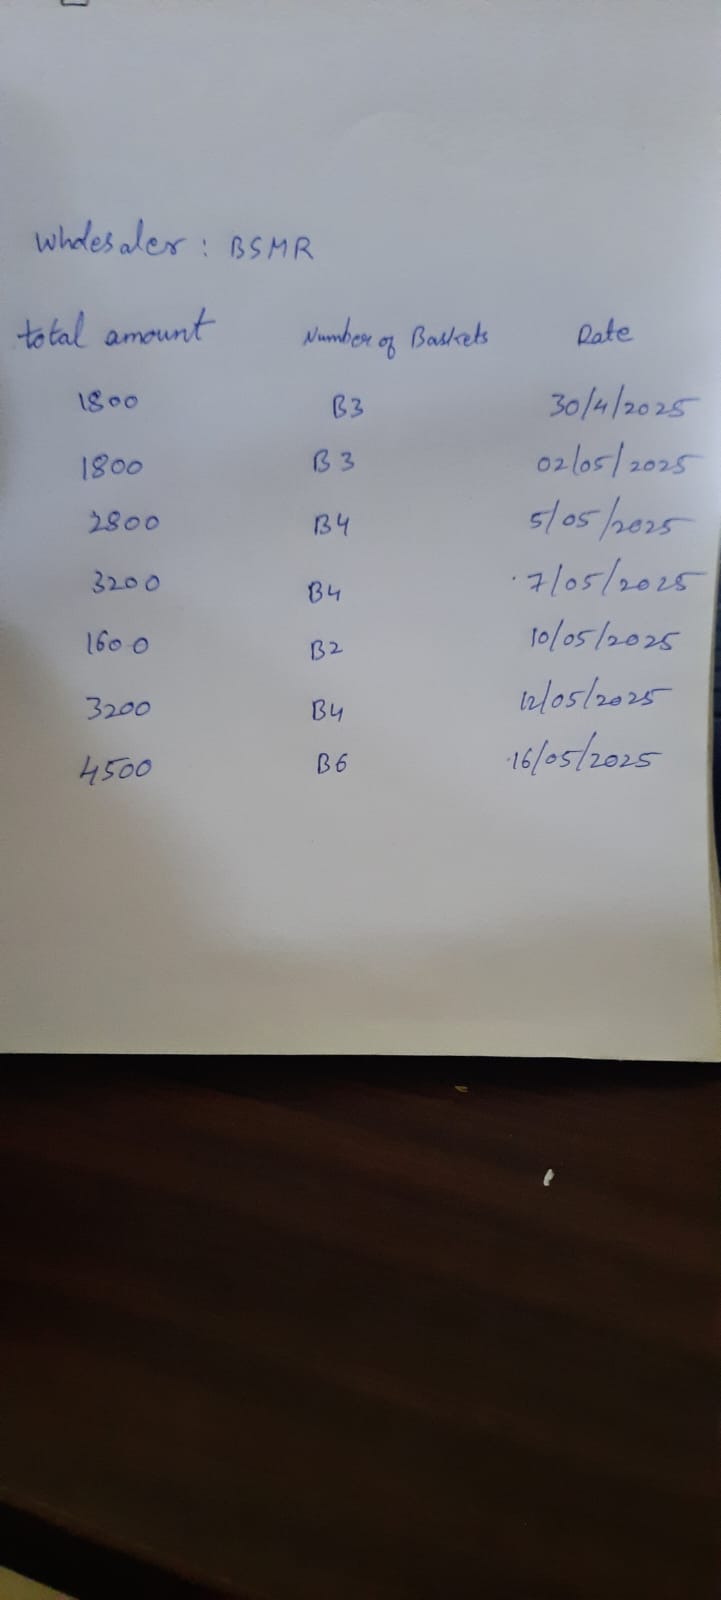 Wholesaler : BSMR
total amount Number of Baskets Date
1800 B3 30/4/2025
1800 B3 02/05/2025
2800 B4 5/05/2025
3200 B4 7/05/2025
1600 B2 10/05/2025
3200 B4 12/05/2025
4500 B6 16/05/2025